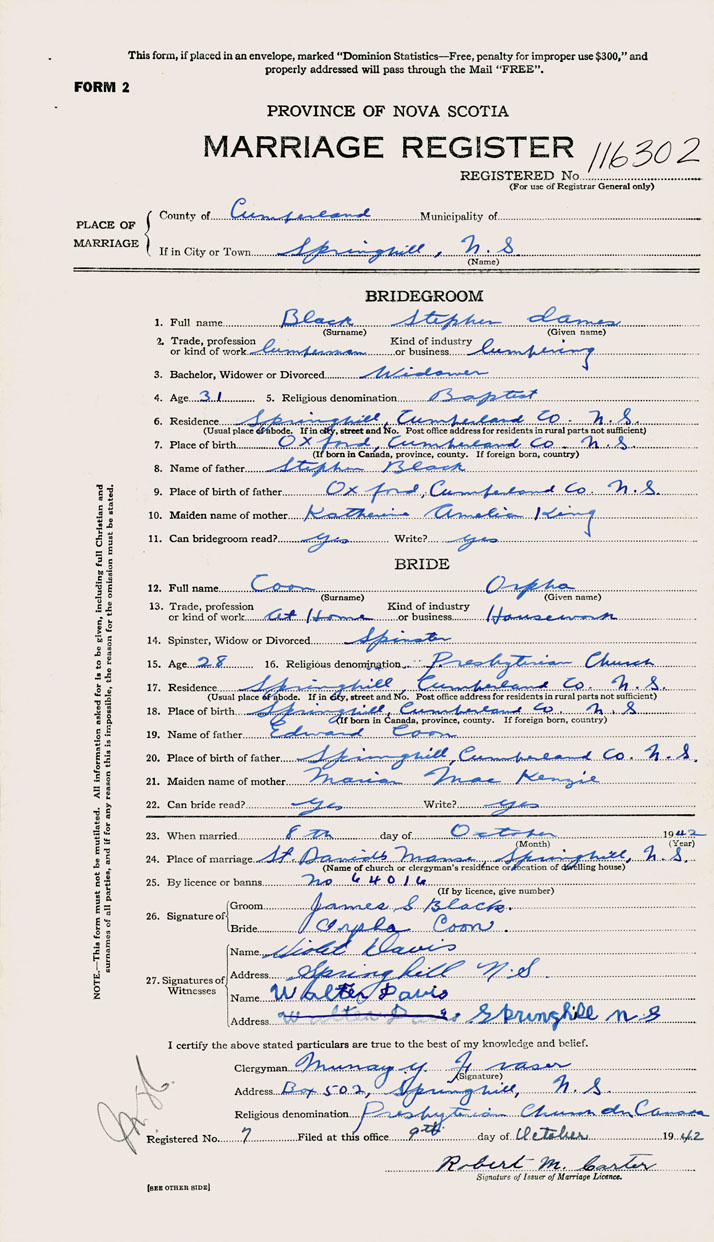 This form, if placed in an envelope, marked "Dominion Statistics—Free, penalty for improper use $300," and
properly addressed will pass through the Mail "FREE".
FORM 2
PROVINCE OF NOVA SCOTIA
MARRIAGE REGISTER 116302
REGISTERED No.
(For use of Registrar General only)
PLACE OF MARRIAGE
County of Cumberland Municipality of
If in City or Town Springhill, N.S.
(Name)
BRIDEGROOM
1. Full name Black Stephen James
(Surname) (Given name)
2. Trade, profession or kind of work lumberman Kind of industry or business lumbering
3. Bachelor, Widower or Divorced Widower
4. Age 31 5. Religious denomination Baptist
6. Residence Springhill, Cumberland Co. N.S.
(Usual place of abode. If in city, street and No. Post office address for residents in rural parts not sufficient)
7. Place of birth Oxford, Cumberland Co. N.S.
(If born in Canada, province, county. If foreign born, country)
8. Name of father Stephen Black
9. Place of birth of father Oxford, Cumberland Co. N.S.
10. Maiden name of mother Katherine Amelia King
11. Can bridegroom read? Yes Write? Yes
BRIDE
12. Full name Coon Orpha
(Surname) (Given name)
13. Trade, profession or kind of work At Home Kind of industry or business Housework
14. Spinster, Widow or Divorced Spinster
15. Age 28 16. Religious denomination Presbyterian Church
17. Residence Springhill, Cumberland Co. N.S.
(Usual place of abode. If in city, street and No. Post office address for residents in rural parts not sufficient)
18. Place of birth Springhill, Cumberland Co. N.S
(If born in Canada, province, county. If foreign born, country)
19. Name of father Edward Coon
20. Place of birth of father Springhill, Cumberland Co. N.S.
21. Maiden name of mother Marian MacKenzie
22. Can bride read? Yes Write? Yes
23. When married 8th day of October 1942
(Month) (Year)
24. Place of marriage St. David's Manse, Springhill, N.S.
(Name of church or clergyman's residence or location of dwelling house)
25. By licence or banns No 64016
(If by licence, give number)
26. Signature of
Groom James S Black.
Bride Orpha Coon.
27. Signatures of Witnesses
Name Violet Davis
Address Springhill N.S.
Name Walter Davis
Address Walter Davis. Springhill NS
I certify the above stated particulars are true to the best of my knowledge and belief.
Clergyman Murray Y. Fraser
(Signature)
Address Box 502, Springhill, N.S.
Religious denomination Presbyterian Church in Canada
Registered No. 7 Filed at this office 9th day of October 1942
Robert M. Carter
Signature of Issuer of Marriage Licence.
[SEE OTHER SIDE]
NOTE.—This form must not be mutilated. All information asked for is to be given, including full Christian and
surnames of all parties, and if for any reason this is impossible, the reason for the omission must be stated.